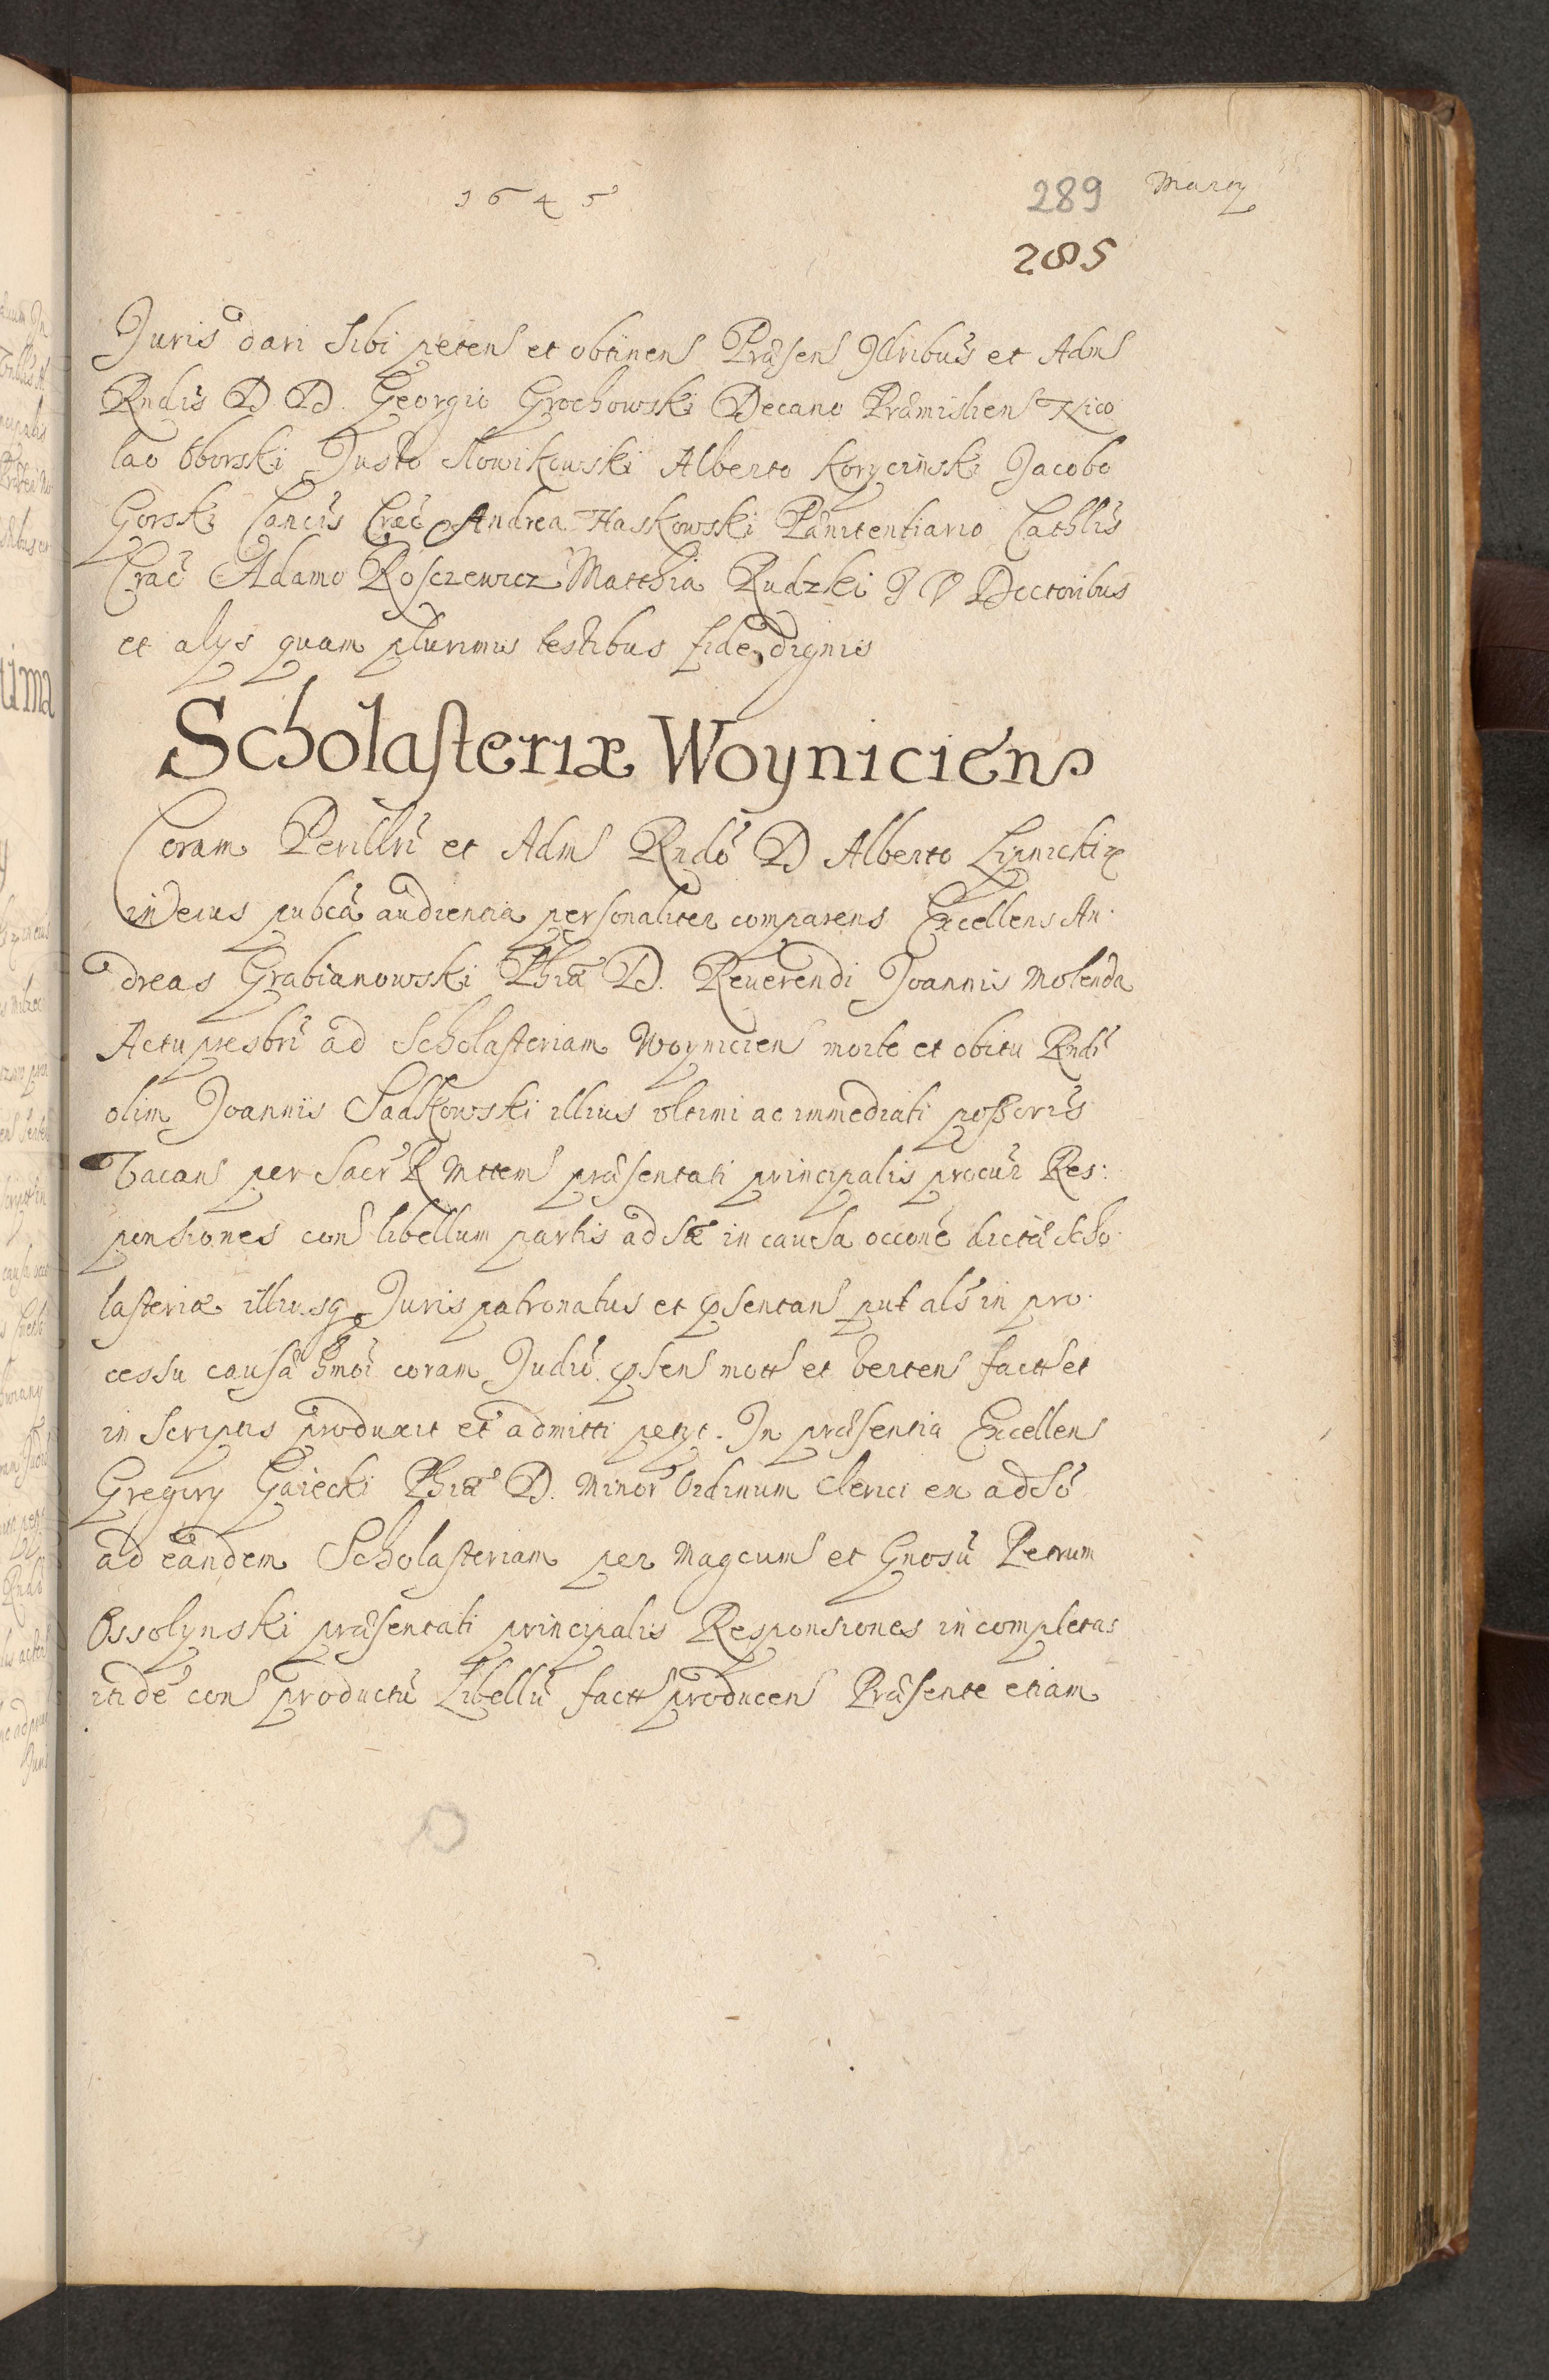 1645
289 Marty
285
Juris dari sibi petens et obtinens Præsen Illribus et Adm
Rndis D D. Georgio Grochowski Decano Præmislien Nico
lao Oborski Justo Slowikowski Alberto Korycinski Jacobo
Gorski Cancis Crac Andrea Haskowski Pænitentiario Cathlis
Crac Adamo Rosczewicz Matthia Rudzki J V Doctoribus
et alys quam plurimis testibus fide dignis
Scholasteriæ Woyniciens
Coram Perillri et Adm Rndo D Alberto Lipnicki
in eius pubca audientia personaliter comparens Excellens An
dreas Grabianowski Phiæ D. Reuerendi Joannis Molenda
Actu presbri ad Scholasteriam Woynicien morte et obitu Rndi
olim Joannis Sadkowski illius vltimi ac immediati possoris
Vacan per Sacr R Mttem præsentati principalis procur Res:
ponsiones con libellum partis ad sæ in causa occone dictæ Scho
lasteriæ illiusq Juris patronatus et psentan put als in pro
cessu causæ hmoi coram Judio psen mott et verten factt et
in scriptis produxit et admitti petyt. In præsentia Excellen
Gregory Gaiecki Phiæ D. Minor Ordinum Clerici ex adso
ad eandem Scholasteriam per Magcum et Gnosu Petrum
Ossolynski præsentati principalis Responsiones in completas
itide con productu Libellu factt producen Præsente etiam